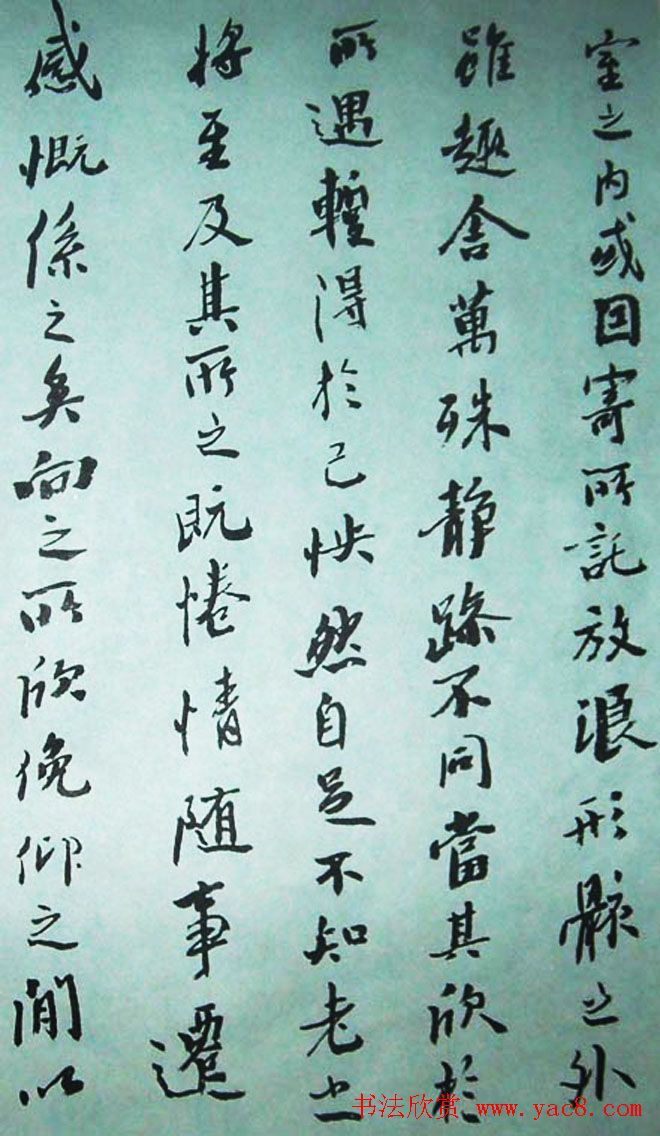 室之内或因寄所託放浪形骸之外
雖趣舍萬殊静躁不同當其欣於
所遇暫得於己怏然自足不知老之
將至及其所之既惓情随事遷
感慨係之矣向之所欣俛仰之間以
书法欣赏 www.yac8.com